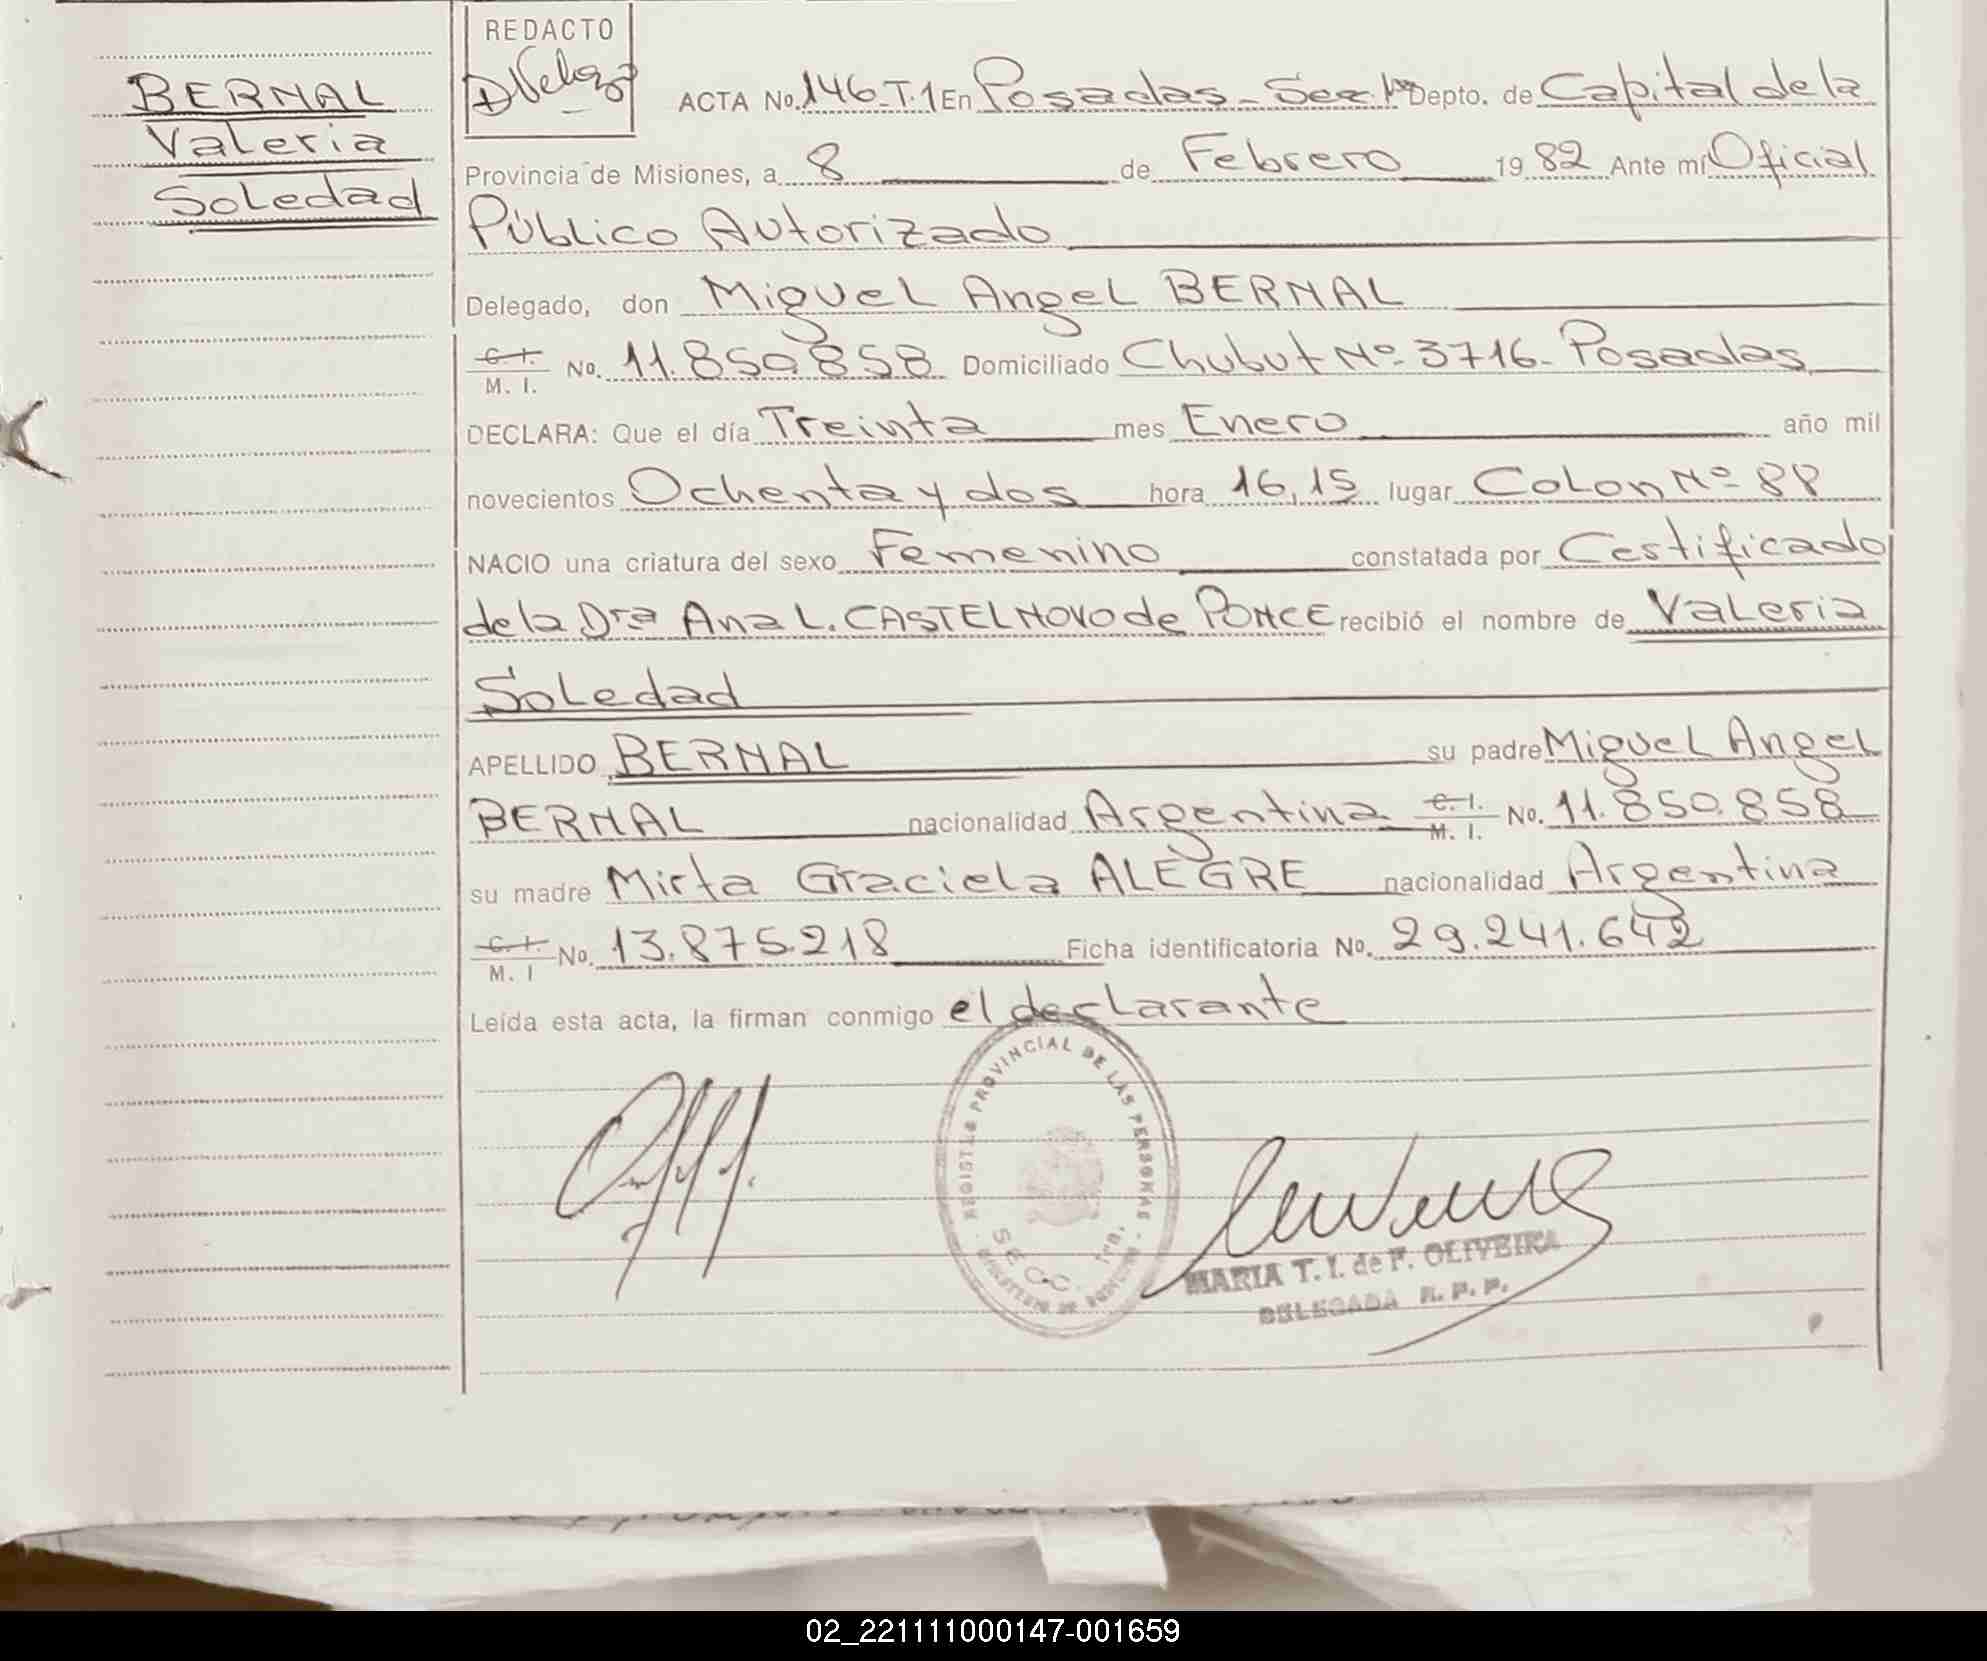 BERNAL
Valeria
Soledad
REDACTO
ACTA No. 146-T.1 En Posadas - Sec. 1ra Depto. de Capital de la
Provincia de Misiones, a 8 de Febrero 19 82 Ante mí Oficial
Público Autorizado
Delegado, don Miguel Angel BERNAL
C. I.
M. I. No. 11.850.858 Domiciliado Chubut Nº 3716- Posadas
DECLARA: Que el día Treinta mes Enero año mil
novecientos Ochenta y dos hora 16,15 lugar Colon Nº 88
NACIO una criatura del sexo Femenino constatada por Certificado
de la Dra Ana L. CASTELNOVO de PONCE recibió el nombre de Valeria
Soledad
APELLIDO BERNAL su padre Miguel Angel
BERNAL nacionalidad Argentina C. I. M. I. No. 11.850.858
su madre Mirta Graciela ALEGRE nacionalidad Argentina
C. I.
M. I No. 13.875.218 Ficha identificatoria No. 29.241.642
Leída esta acta, la firman conmigo el declarante
REGISTRO PROVINCIAL DE LAS PERSONAS
SECC. 1ra.
MARIA T. I. de F. OLIVEIRA
DELEGADA R. P. P.
02_221111000147-001659